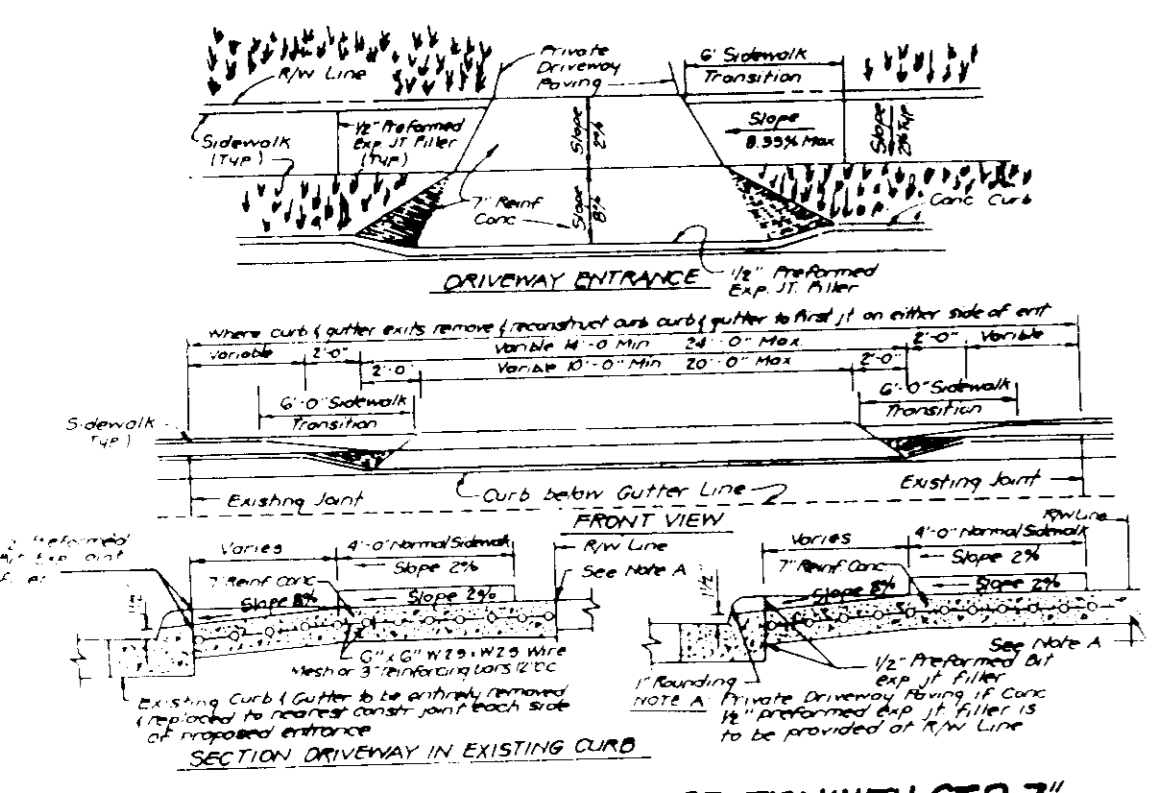 Private
Driveway
Paving
6' Sidewalk
Transition
R/W Line
Sidewalk
(Typ)
1/2" Preformed
Exp JT Filler
(Typ)
Slope
2%
Slope
8.33% Max
Slope
2% Typ
7" Reinf
Conc
Slope
8%
Conc Curb
DRIVEWAY ENTRANCE
1/2" Preformed
Exp. JT. Filler
Where curb & gutter exits remove & reconstruct curb curb & gutter to first jt on either side of ent
Variable 2'-0" Varible 14'-0 Min 24'-0" Max 2'-0" Variable
2'-0" Varible 10'-0" Min 20'-0" Max 2'-0"
6'-0" Sidewalk
Transition
6'-0" Sidewalk
Transition
Sidewalk
Typ)
Existing Joint
Curb below Gutter Line
Existing Joint
FRONT VIEW
Preformed
Exp
Varies
4'-0" Normal Sidewalk
R/W Line
Slope 2%
See Note A
7" Reinf Conc
Slope 8%
Slope 2%
1 1/2"
6" x 6" W2.9 x W2.9 Wire
Mesh or 3" reinforcing bars 12" OC
Existing Curb & Gutter to be entirely removed
& replaced to nearest constr joint each side
of proposed entrance
SECTION DRIVEWAY IN EXISTING CURB
R/W Line
Varies
4'-0" Normal Sidewalk
Slope 2%
7" Reinf Conc
Slope 8%
Slope 2%
1 1/2
See Note A
1/2" Preformed Bit
exp jt filler
1" Rounding
NOTE A: Private Driveway Paving if Conc
1/2" preformed exp jt. filler is
to be provided at R/W Line
WITH
7"